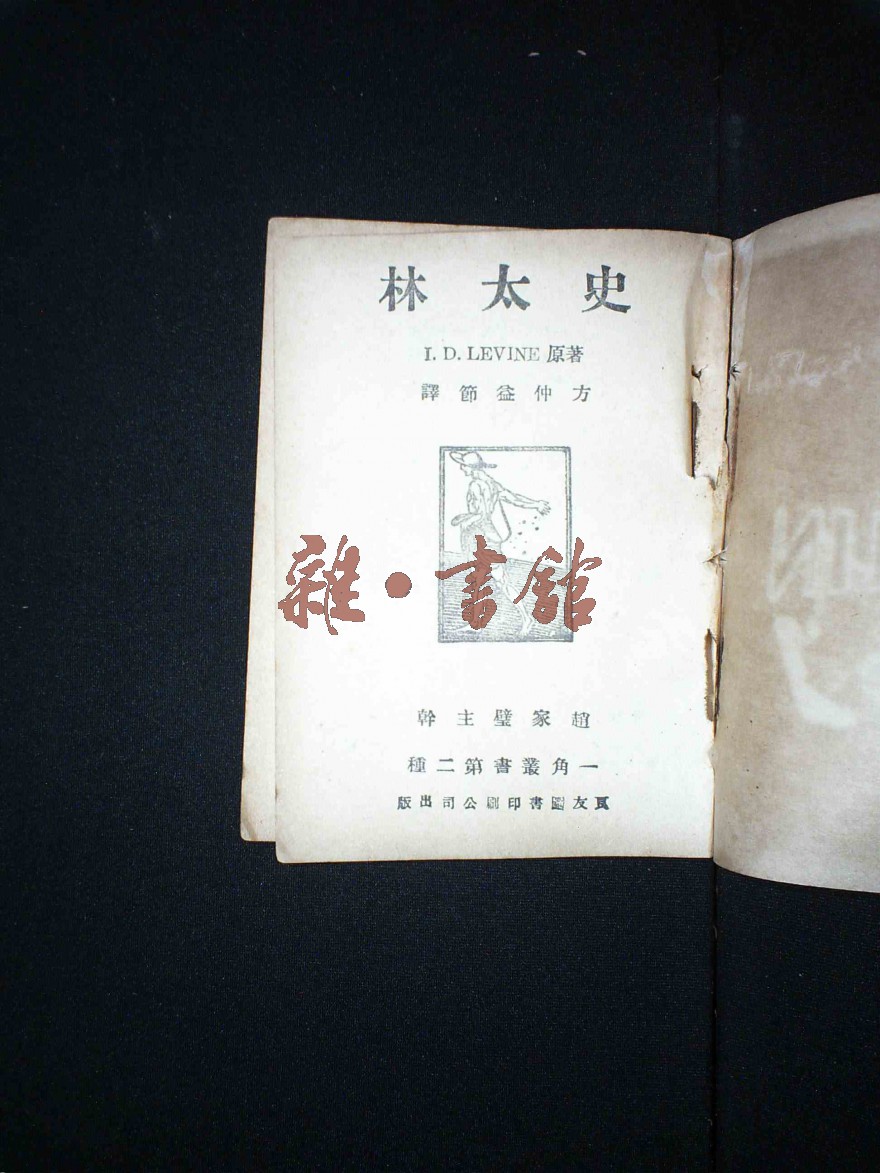 史太林
I. D. LEVINE 原著
方仲益節譯
雜·書館
趙家璧主幹
一角叢書第二種
良友圖書印刷公司出版